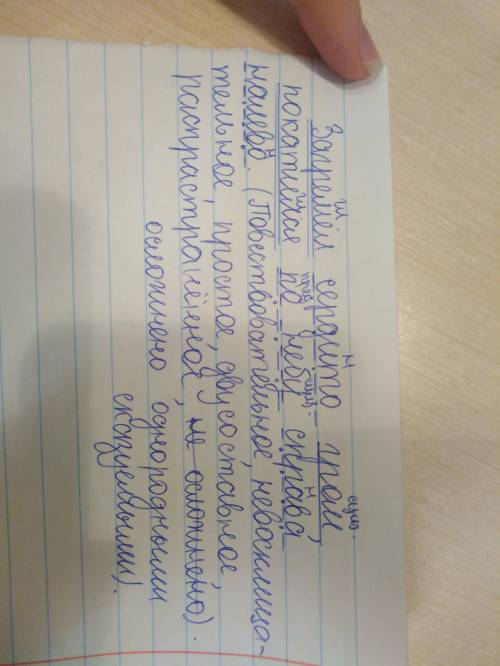 Загремел сердито гром,
покатился по небу справа
налево. (Повествовательное, невосклица-
тельное, простое, двусоставное,
распрастранённое, не осложнено).
осложнено однородными
сказуемыми).